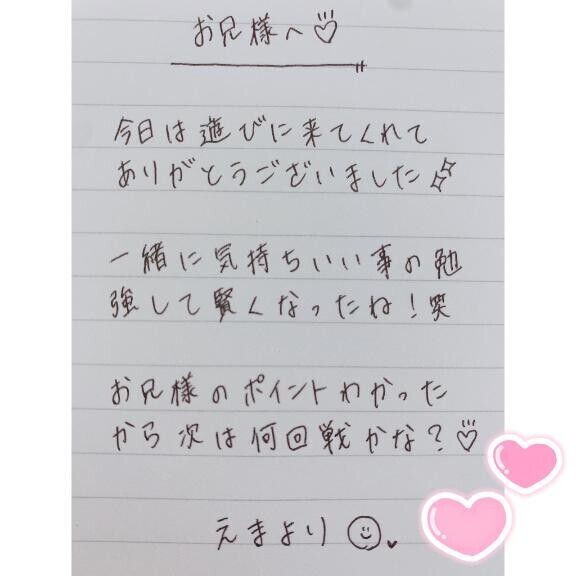 お兄様へ♡
今日は遊びに来てくれて
ありがとうございました
一緒に気持ちいい事の勉
強して賢くなったね！笑
お兄様のポイントわかった
から次は何回戦かな？♡
えまより